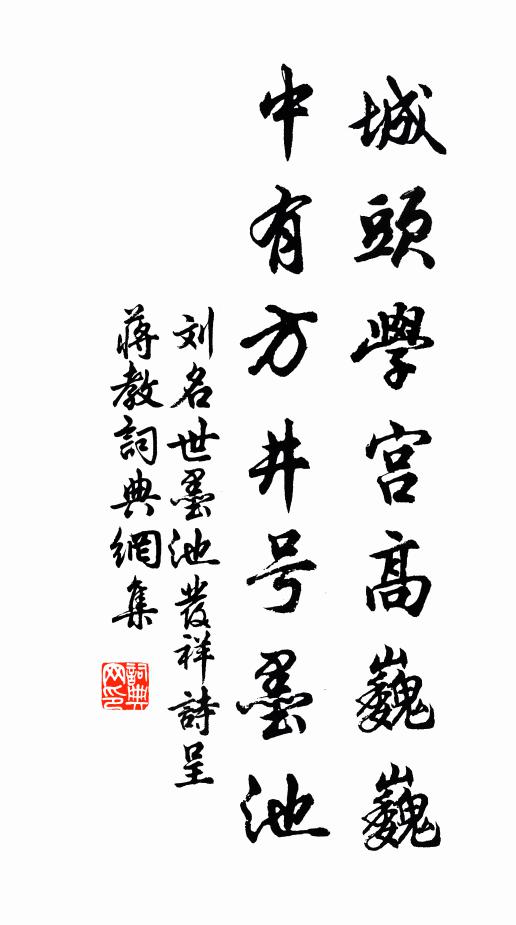 城頭學宮高巍巍
中有方井号墨池
刘名世墨池發祥詩呈
蔣教詞典網集
詞典网印